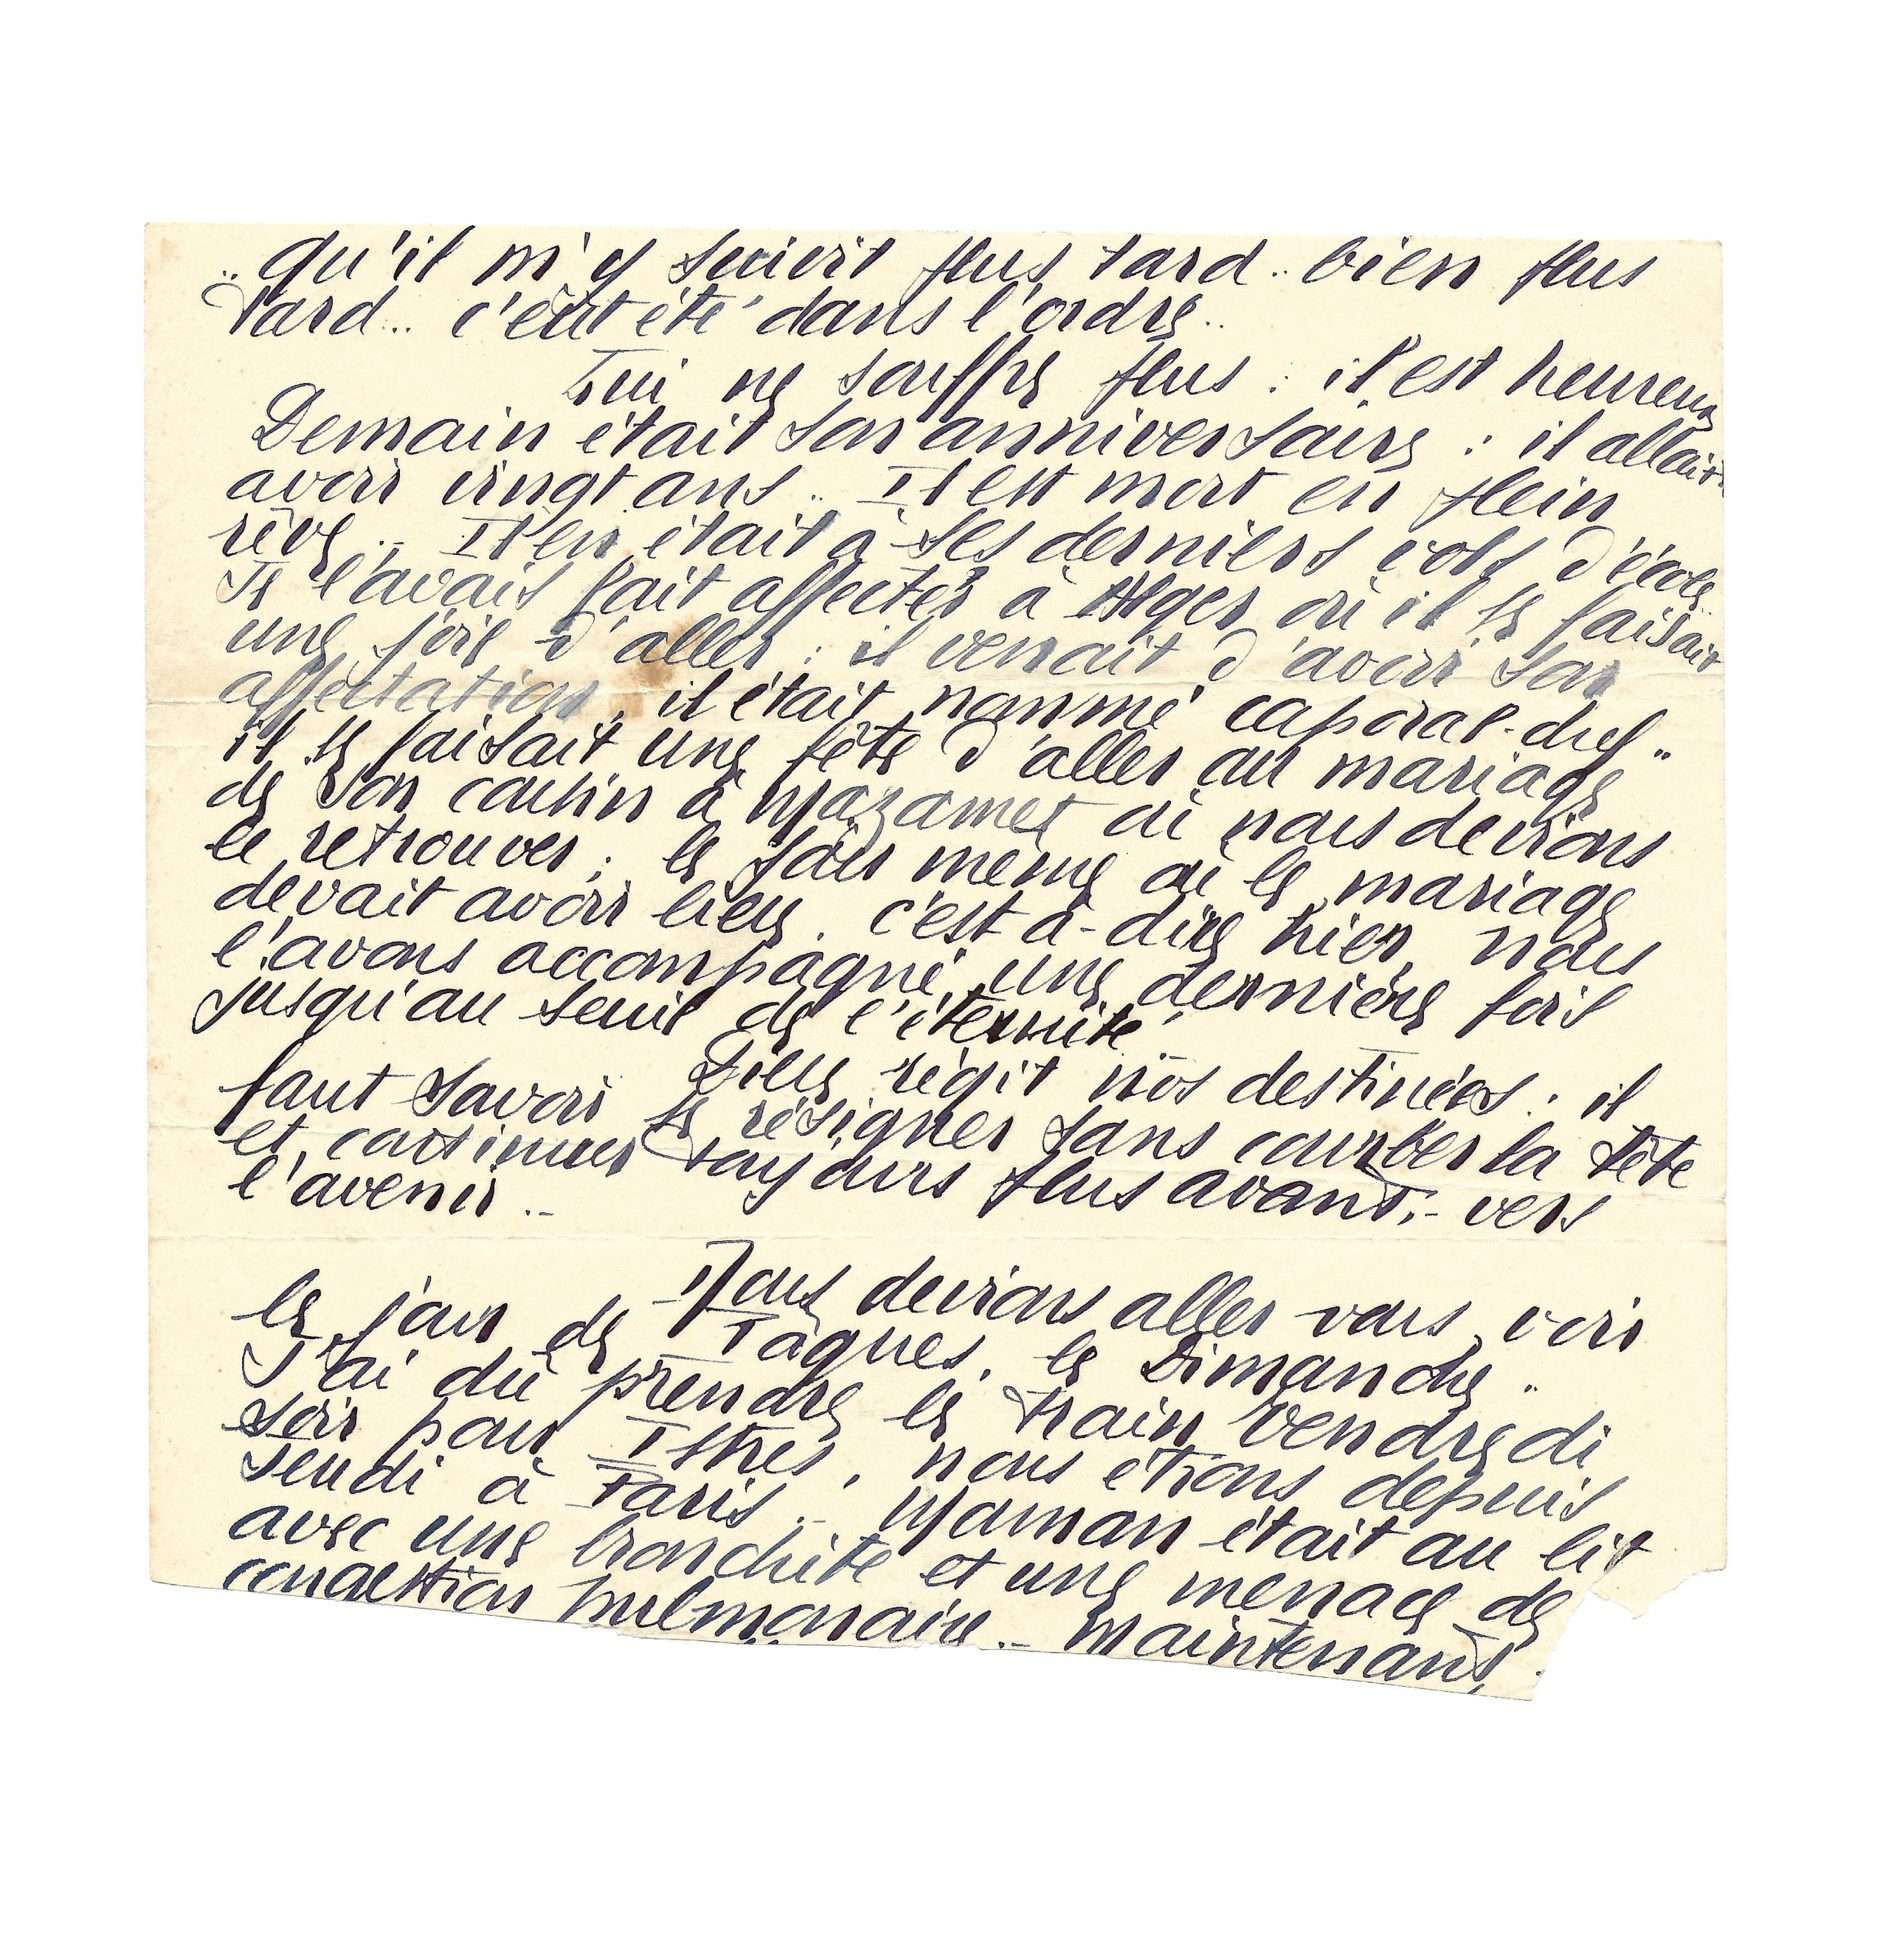 .. qu'il m'y suivit plus tard.. bien plus
tard.. c'eût été dans l'ordre..
Lui ne souffre plus : il est heureux
Demain était son anniversaire : il allait
avoir vingt ans.. Il est mort en plein
rêve.. Il en était à ses derniers vols d'école..
Je l'avais fait affecter à Alger où il se faisait
une joie d'aller : il venait d'avoir son
affectation, il était nommé caporal-chef..
il se faisait une fête d'aller au mariage
de son cousin à Mazamet où nous devions
le retrouver ; le jour même où le mariage
devait avoir lieu, c'est-à-dire hier, nous
l'avons accompagné une dernière fois
jusqu'au seuil de l'éternité.
Dieu régit nos destinées : il
faut savoir se résigner sans courber la tête
et continuer toujours plus avant,- vers
l'avenir..-
Nous devions aller vous voir
le jour de Pâques, le Dimanche..
J'ai dû prendre le train Vendredi
soir pour Istres, nous étions depuis
Jeudi à Paris..- Maman était au lit
avec une bronchite et une menace de
congestion pulmonaire..- Maintenant,